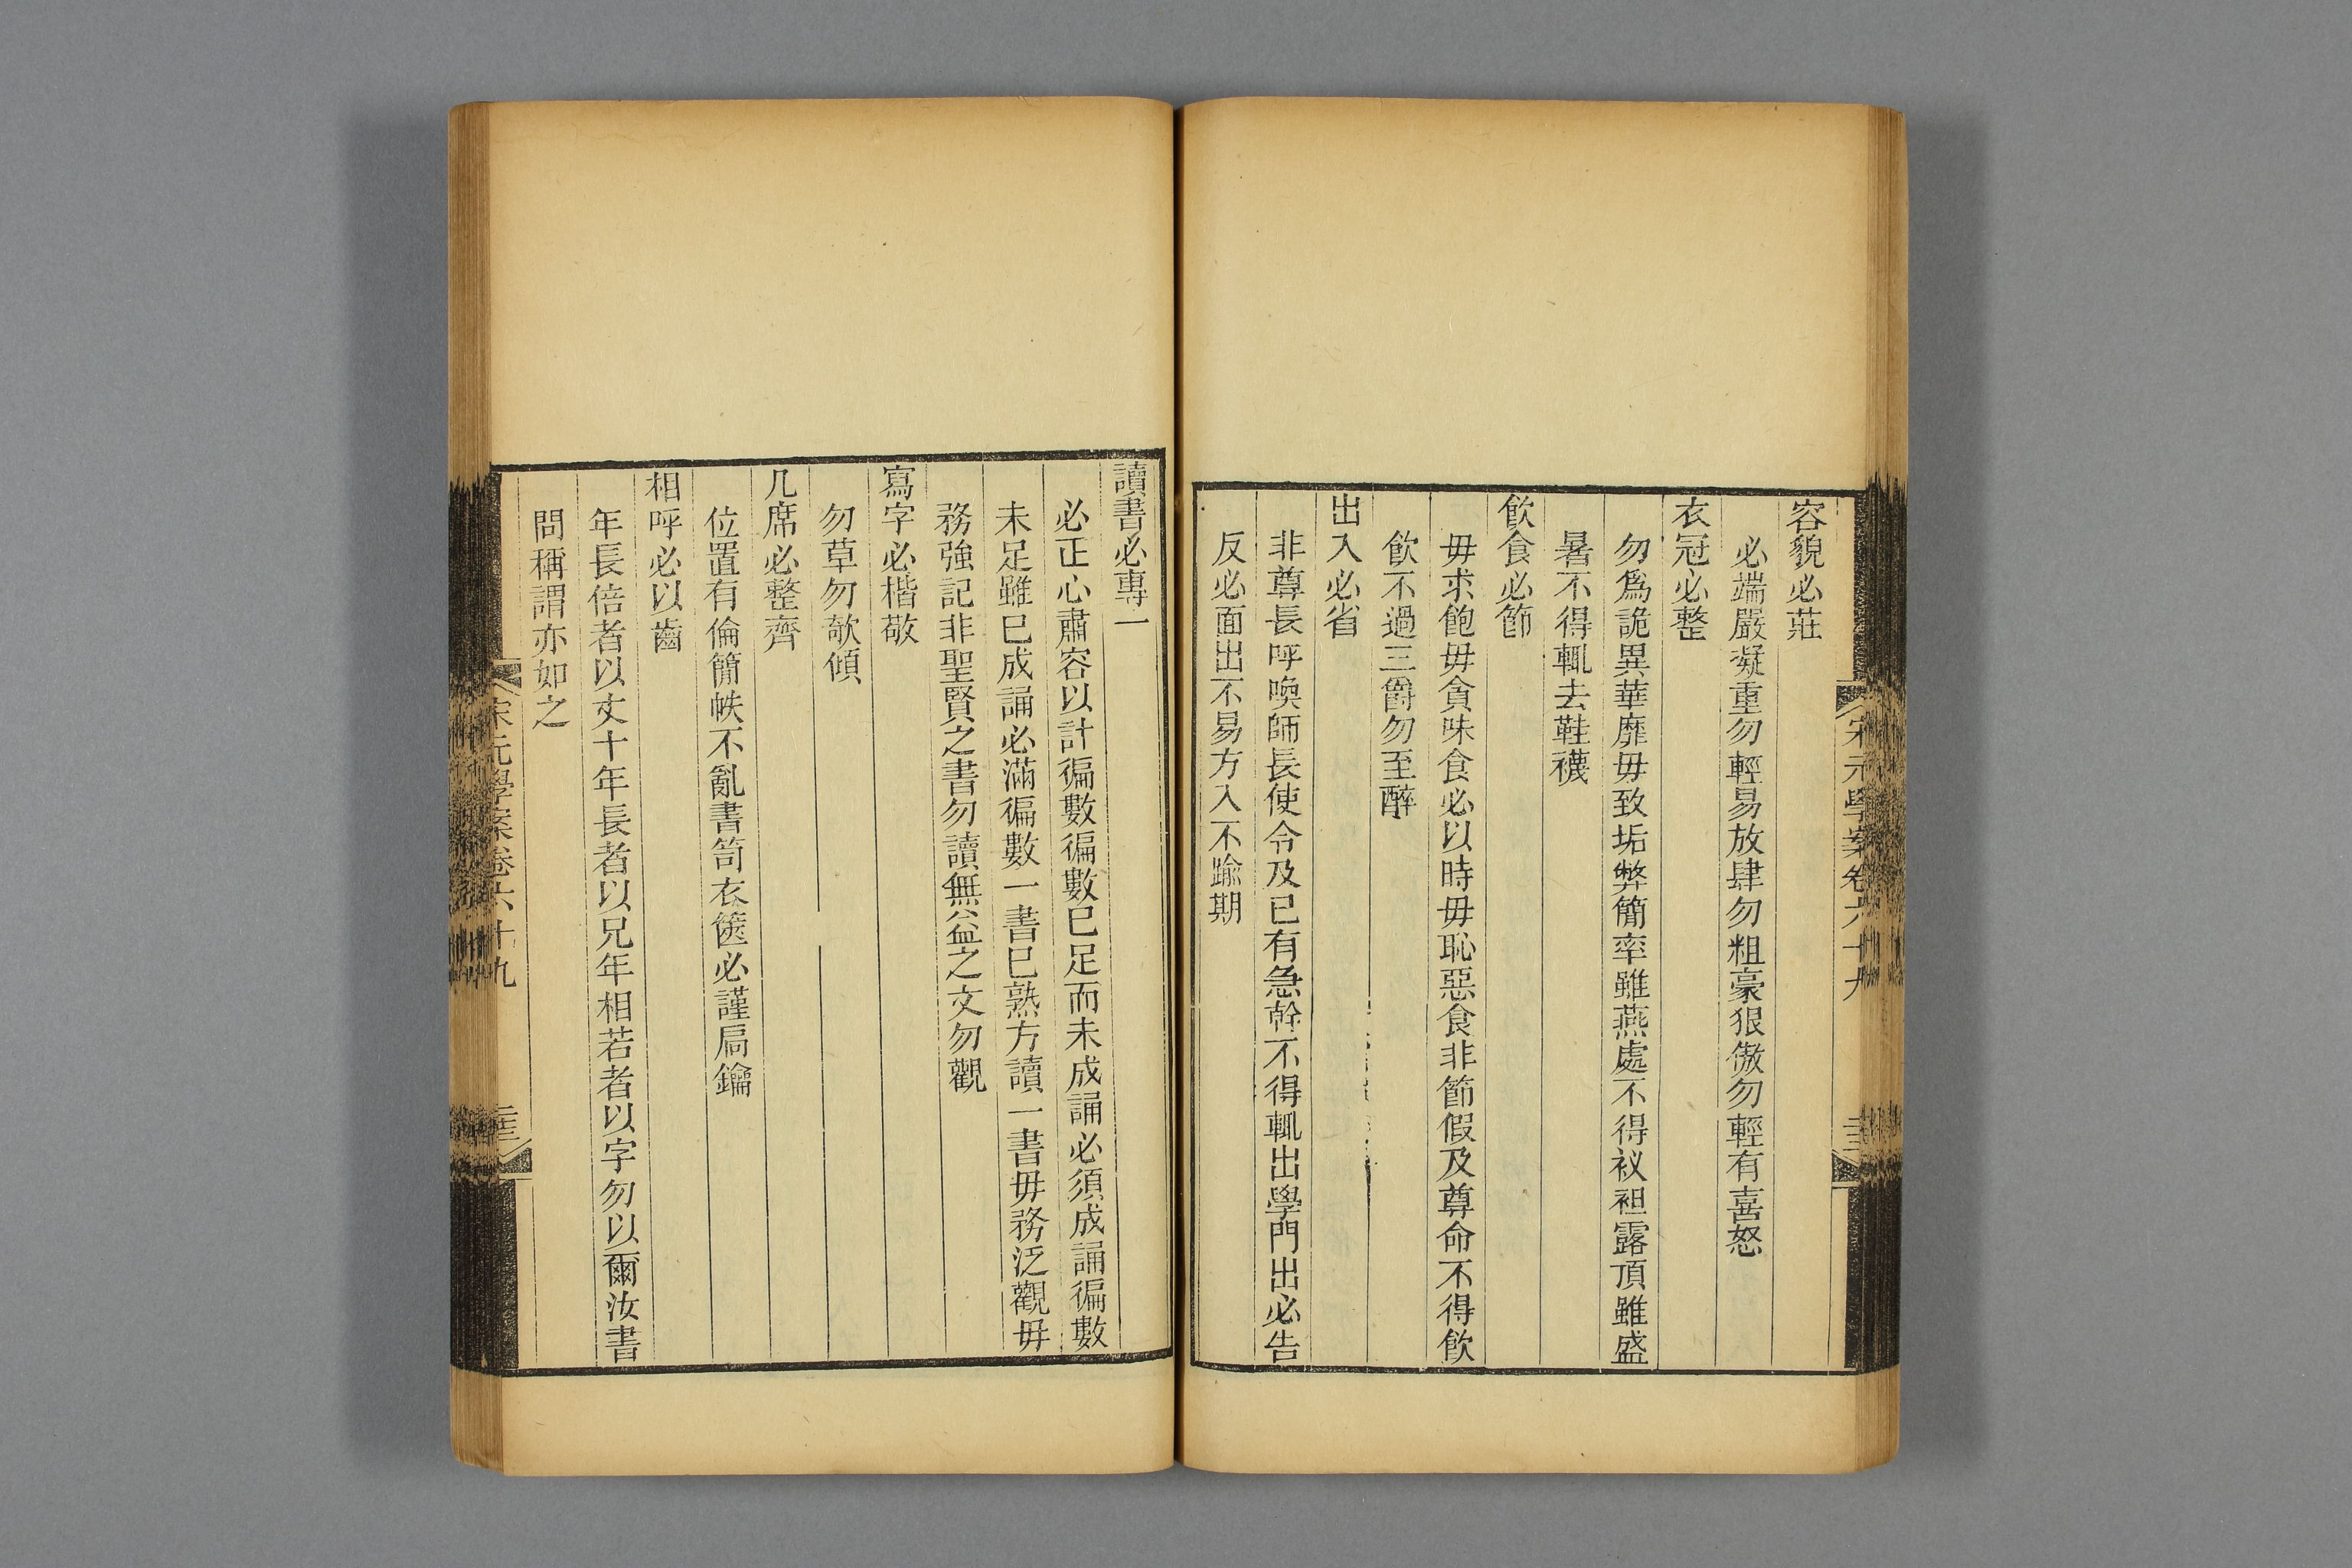 容貌必莊
必端嚴凝重勿輕易放肆勿粗豪狠傲勿輕有喜怒
衣冠必整
勿爲詭異華靡毋致垢弊簡率雖燕處不得衩袒露頂雖盛
暑不得輒去鞋襪
飮食必節
毋求飽毋貪味食必以時毋恥惡食非節假及尊命不得飮
飮不過三爵勿至醉
出入必省
非尊長呼喚師長使令及已有急幹不得輒出學門出必告
反必面出不易方入不踰期
讀書必專一
必正心肅容以計徧數徧數已足而未成誦必須成誦徧數
未足雖已成誦必滿徧數一書已熟方讀一書毋務泛觀毋
務強記非聖賢之書勿讀無益之文勿觀
寫字必楷敬
勿草勿欹傾
几席必整齊
位置有倫簡帙不亂書笥衣篋必謹扃鑰
相呼必以齒
年長倍者以丈十年長者以兄年相若者以字勿以爾汝書
問稱謂亦如之
宋元學案卷六十九